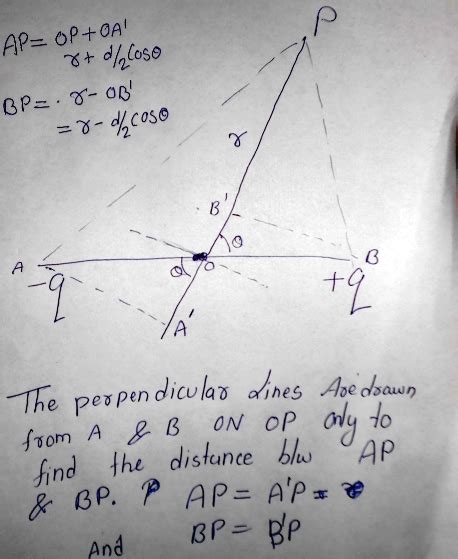 AP= OP+OA'
r+ d/2 Cosθ
BP=. r- OB'
= r- d/2 cosθ
P
r
B'
θ
A
-q
θ
O
B
+q
A'
The perpendicular lines Are drawn
from A & B ON OP only to
find the distance b/w AP
& BP. P AP= A'P= r
And BP= B'P